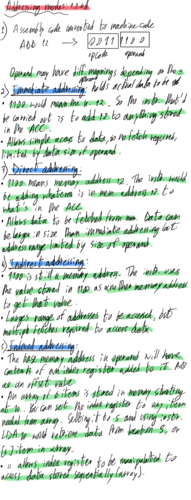 Addressing modes: 12+4
1) Assembly code converted to machine code
ADD 12 → 0011 1100
opcode operand
Operand may have diff meanings depending on the
2) Immediate addressing: holds actual data to be
1100 would mean the 12. So the instr that'd
be carried out is to add 12 to anything stored
in the ACC
Allows simple access to data, so no fetch required,
limited by data size of operand.
3) Direct addressing:
1100 means memory address 12. The instr would
be adding whatever is in mem address 12 to
what's in ACC
Allows data to be fetched from Data can
be larger in size than immediate addressing but
address range limited by size of operand.
4) Indirect addressing:
1100 is still a memory address. The instr uses
the value stored in 1100 as another memory address
to get that value.
Larger range of addresses to be accessed, but
multiple fetches required to access data.
5) Indexed addressing:
The base memory address in operand will have
contents of an index register added to it. Add
as an offset value
An array of 5 items is stored in memory starting
at 10. You can set the index register to any item
needed from array. Setting it to 5 and using instr
LDA 10 would retrieve data from location
item in array.
allows index register to be manipulated to
access data stored sequentially (array).